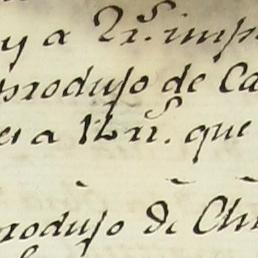 y a 2 r.^s imp
produjo de Ca
es a 12 r.^s que
produjo de Chi